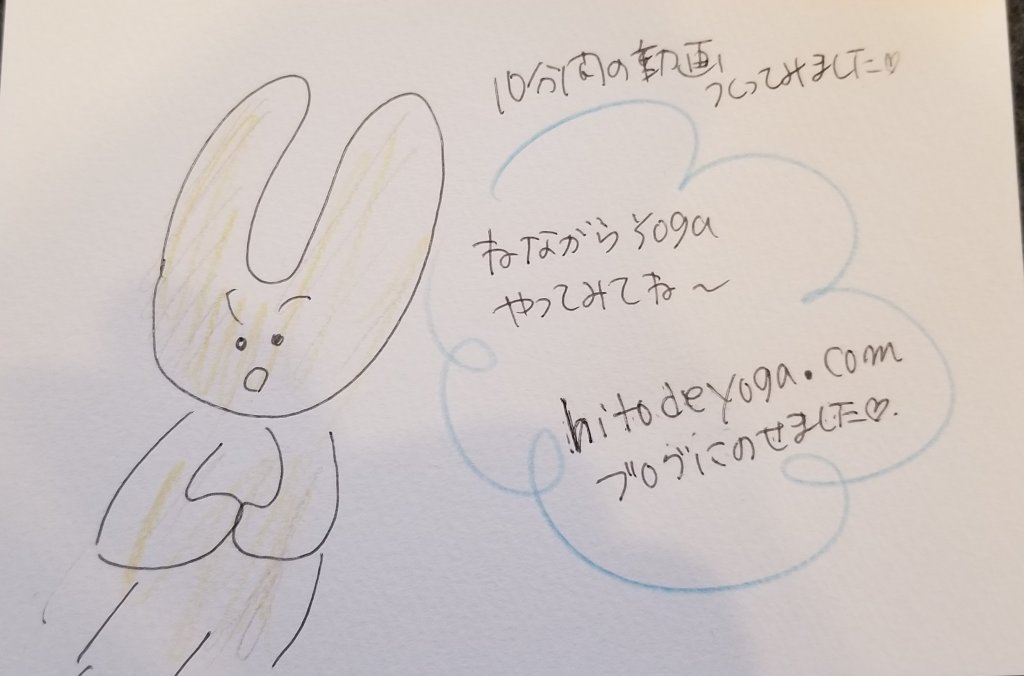 10分間の動画
つくってみました♡
ねながらyoga
やってみてね〜
hitodeyoga.com
ブログにのせました♡.